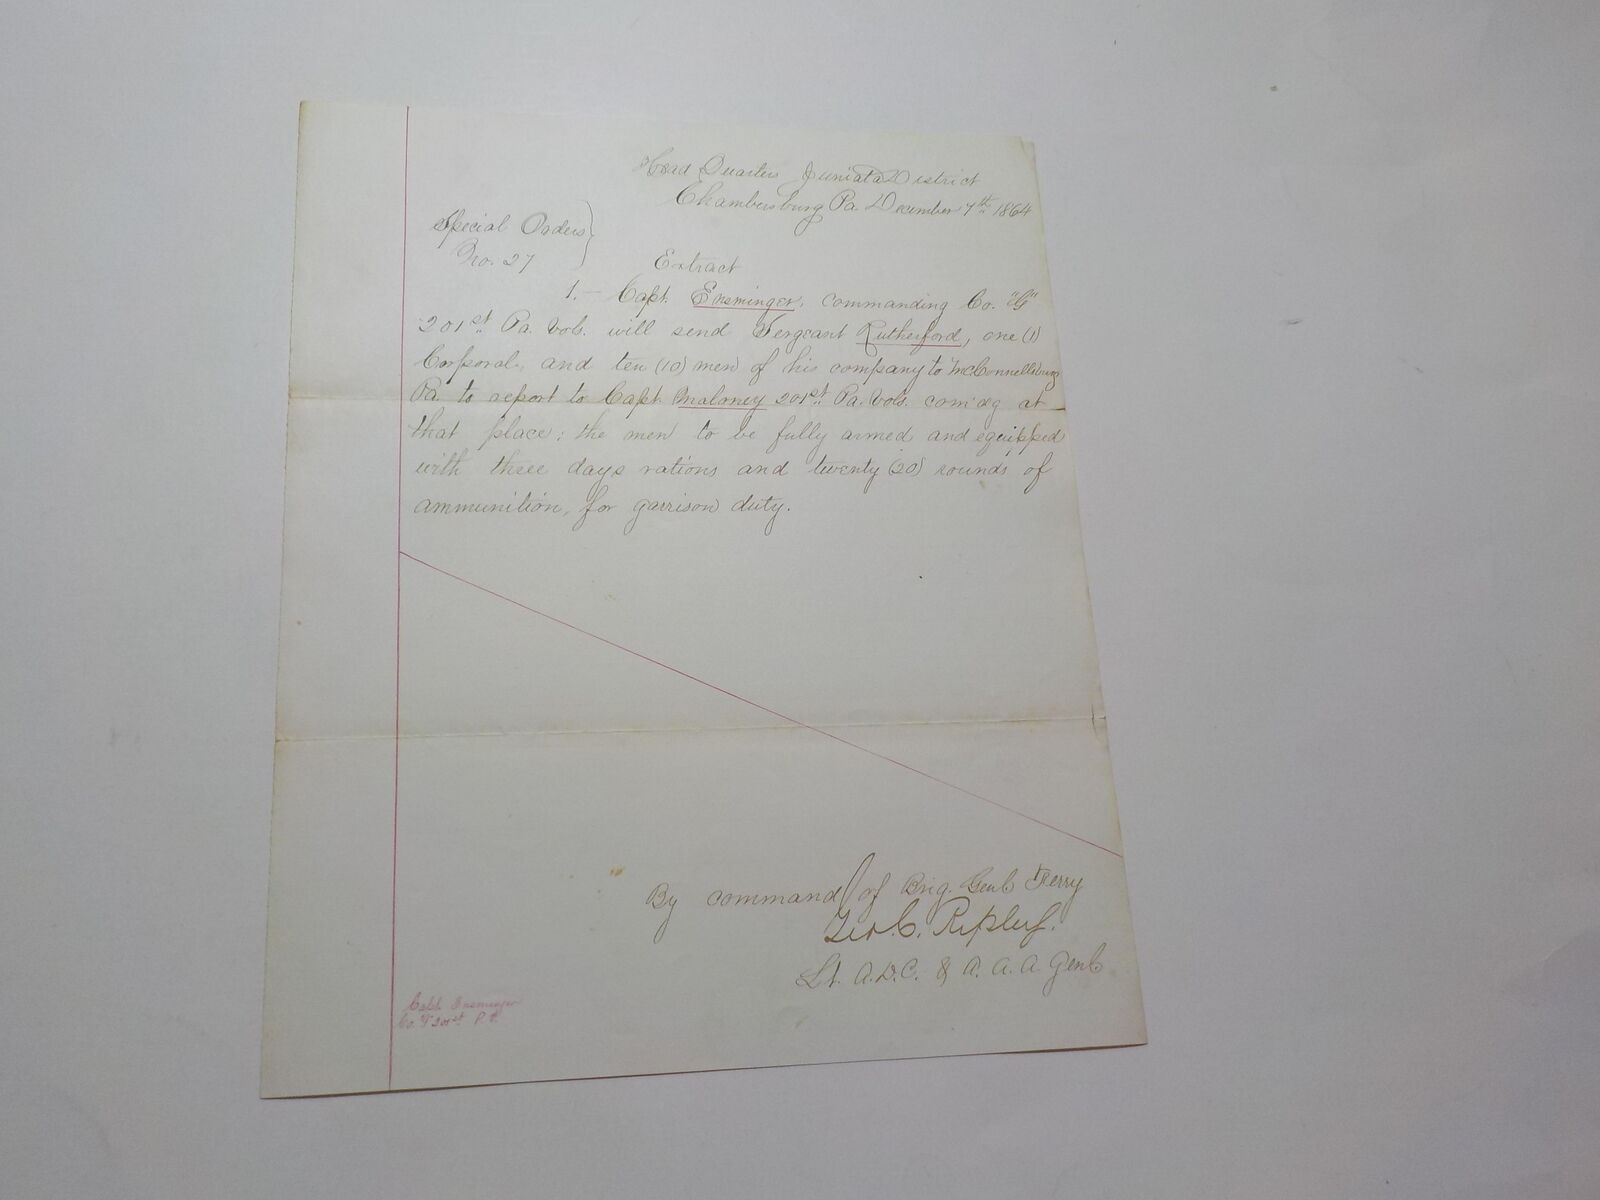 Head Quarters Juniata District
Chambersburg Pa. December 7th 1864
Special Orders
No. 27
Extract
1.- Capt. Ensminger, commanding Co. "G"
201st Pa. Vols. will send Sergeant Rutherford, one (1)
Corporal, and ten (10) men of his company to McConnellsburg
Pa. to report to Capt. Maloney 201st Pa. Vols. com'dg at
that place; the men to be fully armed and equipped
with three days rations and twenty (20) rounds of
ammunition, for garrison duty.
By command of Brig. Genl Ferry
Geo. C. Ripley.
Lt. A.D.C. & A.A.A. Genl
Capt. Ensminger
Co. 201st P.V.